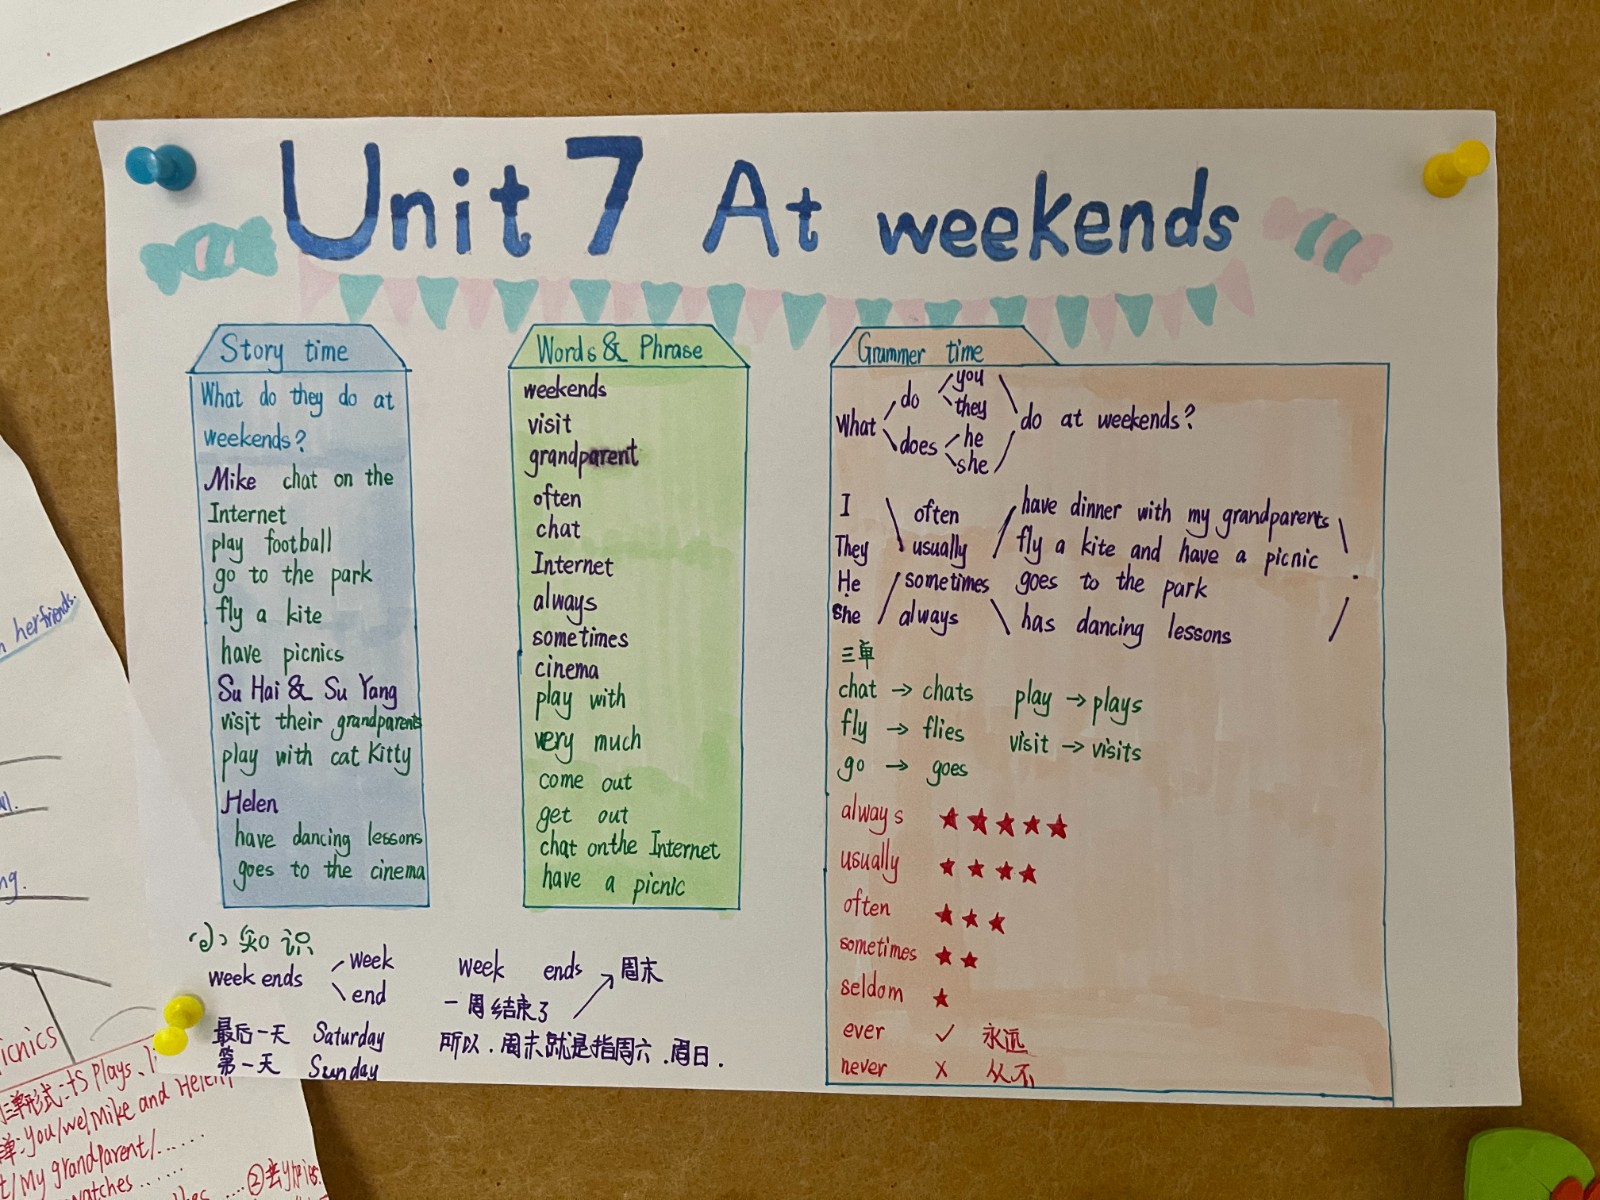 Unit 7 At weekends
Story time
What do they do at
weekends?
Mike chat on the
Internet
play football
go to the park
fly a kite
have picnics
Su Hai & Su Yang
visit their grandparents
play with cat Kitty
Helen
have dancing lessons
goes to the cinema
Words & Phrase
weekends
visit
grandparent
often
chat
Internet
always
sometimes
cinema
play with
very much
come out
get out
chat on the Internet
have a picnic
Grammer time
What do you they do at weekends?
does he she
I often have dinner with my grandparents
They usually fly a kite and have a picnic .
He sometimes goes to the park
She always has dancing lessons
三单
chat → chats play → plays
fly → flies visit → visits
go → goes
always ★★★★★
usually ★★★★
often ★★★
sometimes ★★
seldom ★
ever ✓ 永远
never x 从不
小知识
week ends week end
最后一天 Saturday
第一天 Sunday
week ends → 周末
一周结束了
所以.周末就是指周六.周日.
herfriends.
ng.
icnics
三单形式:+s plays、
单:you/we/Mike and Helen/
t/My grandparent/......
watches......
....②去y加ies.